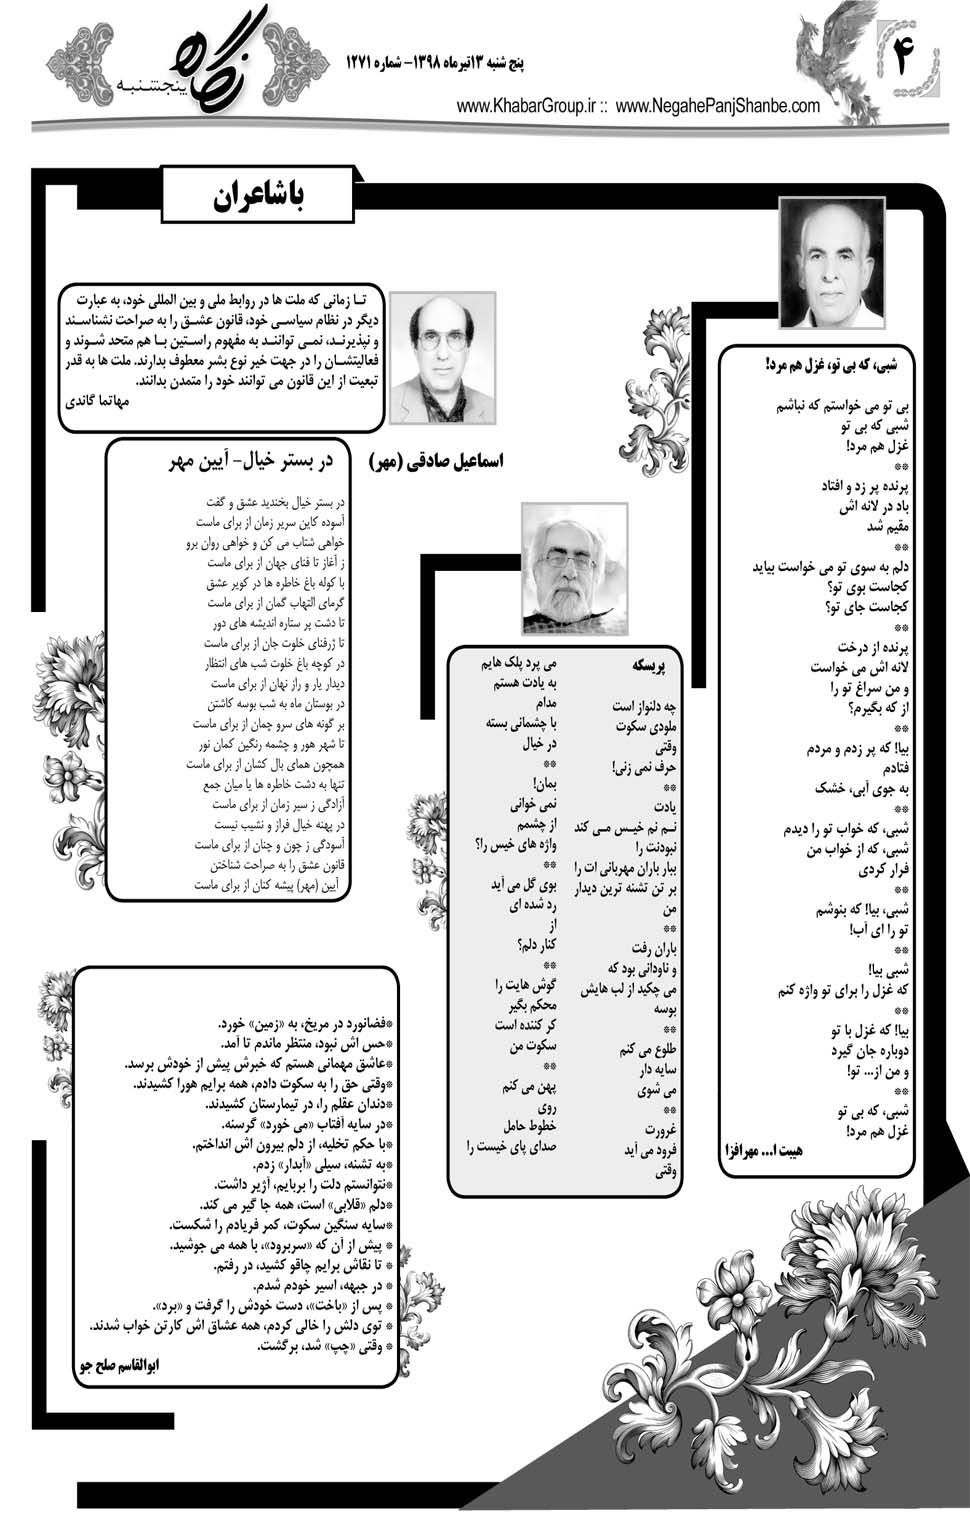 ۴
پنج شنبه ۱۳تیرماه ۱۳۹۸- شماره ۱۲۷۱
www.KhabarGroup.ir :: www.NegahePanjShanbe.com
نگاه
پنجشنبه
با شاعران
شبی، که بی تو، غزل هم مرد!
بی تو می خواستم که نباشم
شبی که بی تو
غزل هم مرد!
**
پرنده پر زد و افتاد
باد در لانه اش
مقیم شد
**
دلم به سوی تو می خواست بیاید
کجاست بوی تو؟
کجاست جای تو؟
**
پرنده از درخت
لانه اش می خواست
و من سراغ تو را
از که بگیرم؟
**
بیا! که پر زدم و مردم
فتادم
به جوی آبی، خشک
**
شبی، که خواب تو را دیدم
شبی، که از خواب من
فرار کردی
**
شبی، بیا! که بنوشم
تو را ای آب!
**
شبی بیا!
که غزل را برای تو واژه کنم
**
بیا! که غزل با تو
دوباره جان گیرد
و من از... تو!
**
شبی، که بی تو
غزل هم مرد!
هیبت ا... مهرافزا
تـا زمانی که ملت ها در روابط ملی و بین المللی خود، به عبارت
دیگر در نظام سیاسـی خود، قانون عشـق را به صراحت نشناسـند
و نپذیرنـد، نمـی تواننـد به مفهوم راسـتین بـا هم متحد شـوند و
فعالیتشـان را در جهت خیر نوع بشر معطوف بدارند. ملت ها به قدر
تبعیت از این قانون می توانند خود را متمدن بدانند.
مهاتما گاندی
اسماعیل صادقی (مهر)
در بستر خیال- آیین مهر
در بستر خیال بخندید عشق و گفت
آسوده کاین سریر زمان از برای ماست
خواهی شتاب می کن و خواهی روان برو
ز آغاز تا فنای جهان از برای ماست
با کوله باغ خاطره ها در کویر عشق
گرمای التهاب گمان از برای ماست
تا دشت پر ستاره اندیشه های دور
تا ژرفنای خلوت جان از برای ماست
در کوچه باغ خلوت شب های انتظار
دیدار یار و راز نهان از برای ماست
در بوستان ماه به شب بوسه کاشتن
بر گونه های سرو چمان از برای ماست
تا شهر هور و چشمه رنگین کمان نور
همچون همای بال کشان از برای ماست
تنها به دشت خاطره ها یا میان جمع
آزادگی ز سیر زمان از برای ماست
در پهنه خیال فراز و نشیب نیست
آسودگی ز چون و چنان از برای ماست
قانون عشق را به صراحت شناختن
آیین (مهر) پیشه کنان از برای ماست
پریسکه
چه دلنواز است
ملودی سکوت
وقتی
حرف نمی زنی!
**
یادت
نـم نم خیـس مـی کند
نبودنت را
ببار باران مهربانی ات را
بر تن تشنه ترین دیدار
من
**
باران رفت
و ناودانی بود که
می چکید از لب هایش
بوسه
**
طلوع می کنم
سایه دار
می شوی
**
غرورت
فرود می آید
وقتی
می پرد پلک هایم
به یادت هستم
مدام
با چشمانی بسته
در خیال
**
بمان!
نمی خوانی
از چشمم
واژه های خیس را؟
**
بوی گل می آید
رد شده ای
از
کنار دلم؟
**
گوش هایت را
محکم بگیر
کر کننده است
سکوت من
**
پهن می کنم
روی
خطوط حامل
صدای پای خیست را
*فضانورد در مریخ، به «زمین» خورد.
*حس اش نبود، منتظر ماندم تا آمد.
*عاشق مهمانی هستم که خبرش پیش از خودش برسد.
*وقتی حق را به سکوت دادم، همه برایم هورا کشیدند.
*دندان عقلم را، در تیمارستان کشیدند.
*در سایه آفتاب «می خورد» گرسنه.
*با حکم تخلیه، از دلم بیرون اش انداختم.
*به تشنه، سیلی «آبدار» زدم.
*نتوانستم دلت را بربایم، آژیر داشت.
*دلم «قلابی» است، همه جا گیر می کند.
*سایه سنگین سکوت، کمر فریادم را شکست.
* پیش از آن که «سربرود»، با همه می جوشید.
* تا نقاش برایم چاقو کشید، در رفتم.
* در جبهه، اسیر خودم شدم.
* پس از «باخت»، دست خودش را گرفت و «برد».
* توی دلش را خالی کردم، همه عشاق اش کارتن خواب شدند.
* وقتی «چپ» شد، برگشت.
ابوالقاسم صلح جو